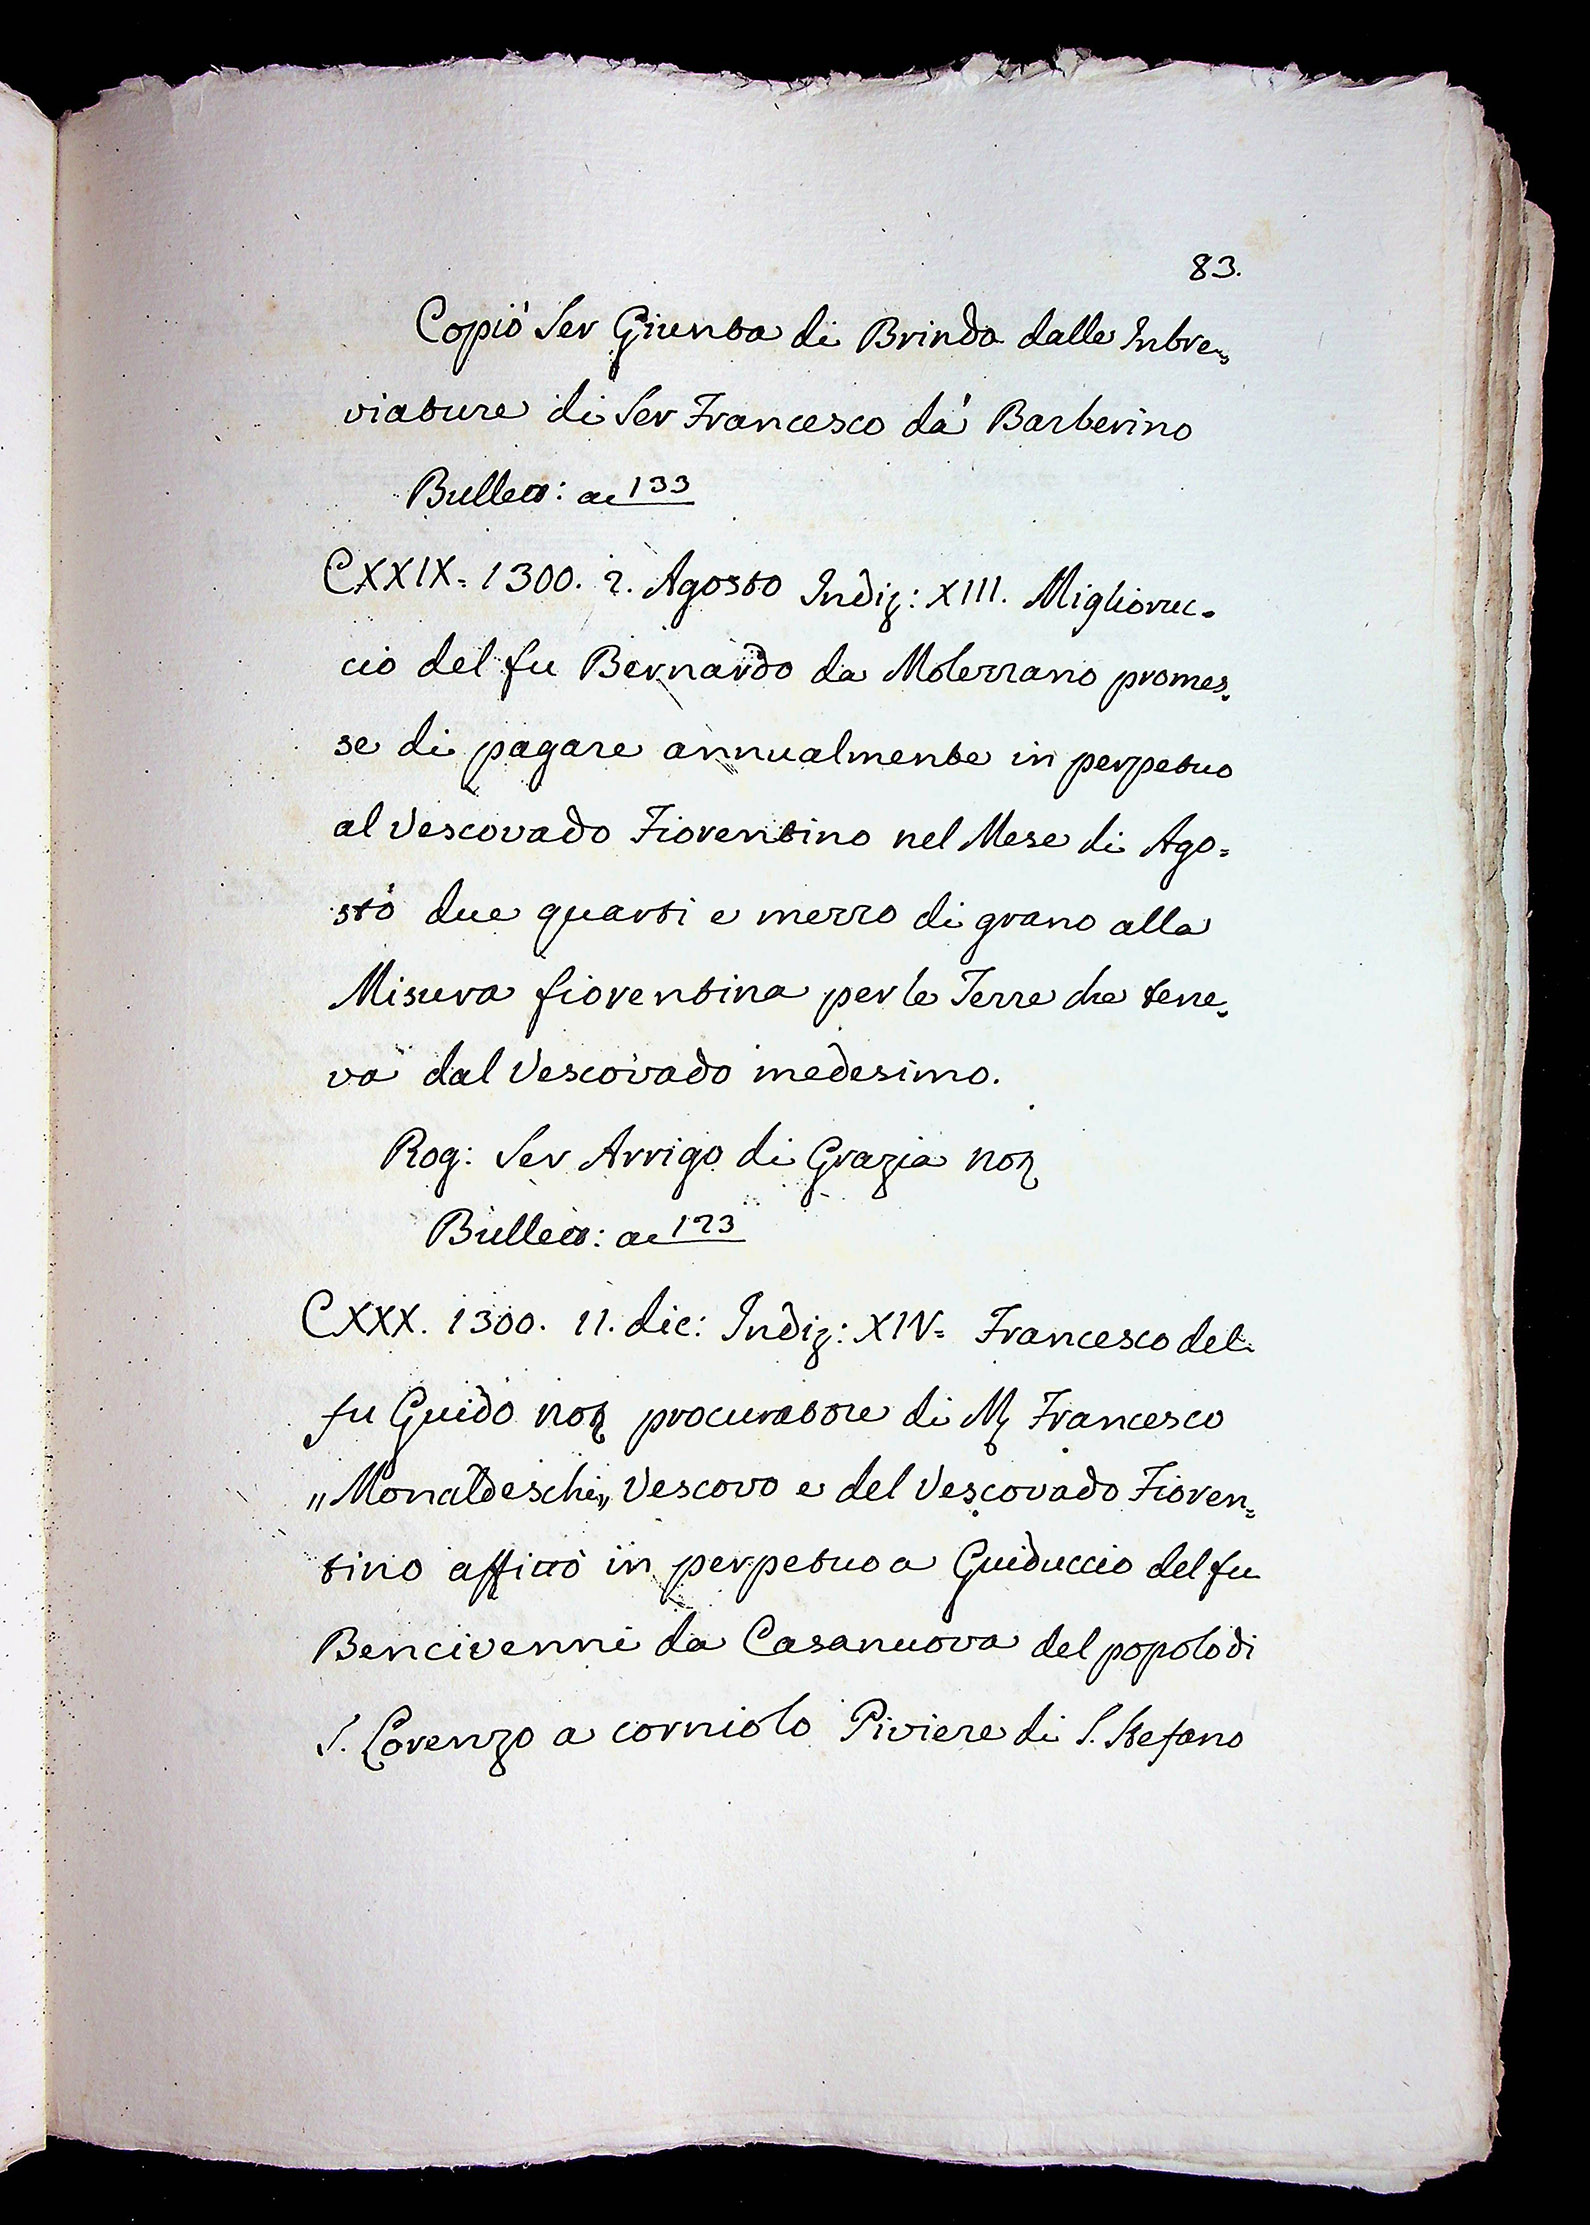 83.
Copiò Ser Giunta di Brindo dalle Inbre„
viature di Ser Francesco dà Barberino
Bullett: a 133
CXXIX. 1300. 2. Agosto Indiz: XIII. Miglioruc=
cio del fu Bernardo da Molezzano promes„
se di pagare annualmente in perpetuo
al Vescovado Fiorentino nel Mese di Ago=
sto due quarti e mezzo di grano alla
Misura fiorentina per le Terre che tene„
va dal Vescovado medesimo.
Rog: Ser Arrigo di Grazia not
Bullett: a 123
CXXX. 1300. 11. dic: Indiz: XIV= Francesco del
fu Guido not procuratore di M. Francesco
„Monaldeschi„ Vescovo e del Vescovado Fioren„
tino affittò in perpetuo a Guiduccio del fu
Bencivenni da Casanuova del popolo di
S. Lorenzo a corniolo Piviere di S. Stefano